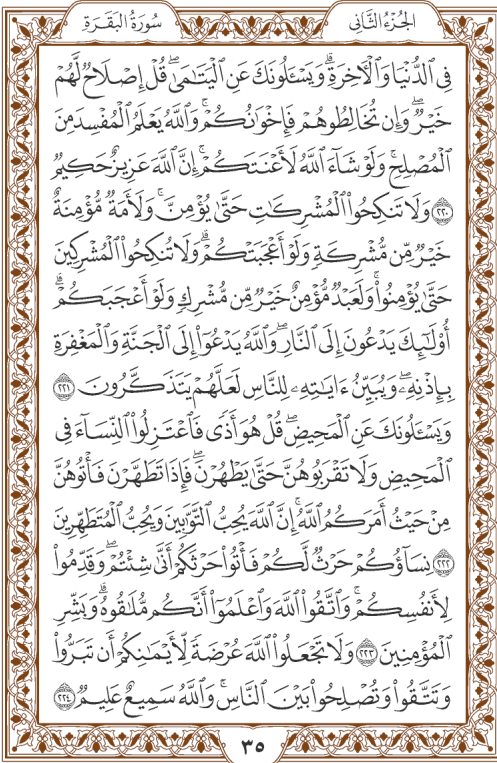 الجُزْءُ الثَّانِي
سُورَةُ البَقَرَةِ
فِي الدُّنْيَا وَالْآخِرَةِ ۗ وَيَسْـَٔلُونَكَ عَنِ الْيَتَامَىٰ ۖ قُلْ إِصْلَاحٌ لَّهُمْ
خَيْرٌ ۖ وَإِن تُخَالِطُوهُمْ فَإِخْوَانُكُمْ ۚ وَاللَّهُ يَعْلَمُ الْمُفْسِدَ مِنَ
الْمُصْلِحِ ۚ وَلَوْ شَاءَ اللَّهُ لَأَعْنَتَكُمْ ۚ إِنَّ اللَّهَ عَزِيزٌ حَكِيمٌ
٢٢٠ وَلَا تَنكِحُوا الْمُشْرِكَاتِ حَتَّىٰ يُؤْمِنَّ ۚ وَلَأَمَةٌ مُّؤْمِنَةٌ
خَيْرٌ مِّن مُّشْرِكَةٍ وَلَوْ أَعْجَبَتْكُمْ ۗ وَلَا تُنكِحُوا الْمُشْرِكِينَ
حَتَّىٰ يُؤْمِنُوا ۚ وَلَعَبْدٌ مُّؤْمِنٌ خَيْرٌ مِّن مُّشْرِكٍ وَلَوْ أَعْجَبَكُمْ ۗ
أُولَٰئِكَ يَدْعُونَ إِلَى النَّارِ ۖ وَاللَّهُ يَدْعُوا إِلَى الْجَنَّةِ وَالْمَغْفِرَةِ
بِإِذْنِهِ ۖ وَيُبَيِّنُ ءَايَاتِهِ لِلنَّاسِ لَعَلَّهُمْ يَتَذَكَّرُونَ ٢٢١
وَيَسْـَٔلُونَكَ عَنِ الْمَحِيضِ ۖ قُلْ هُوَ أَذًى فَاعْتَزِلُوا النِّسَاءَ فِي
الْمَحِيضِ وَلَا تَقْرَبُوهُنَّ حَتَّىٰ يَطْهُرْنَ ۖ فَإِذَا تَطَهَّرْنَ فَأْتُوهُنَّ
مِنْ حَيْثُ أَمَرَكُمُ اللَّهُ ۚ إِنَّ اللَّهَ يُحِبُّ التَّوَّابِينَ وَيُحِبُّ الْمُتَطَهِّرِينَ
٢٢٢ نِسَاؤُكُمْ حَرْثٌ لَّكُمْ فَأْتُوا حَرْثَكُمْ أَنَّىٰ شِئْتُمْ ۖ وَقَدِّمُوا
لِأَنفُسِكُمْ ۚ وَاتَّقُوا اللَّهَ وَاعْلَمُوا أَنَّكُم مُّلَاقُوهُ ۗ وَبَشِّرِ
الْمُؤْمِنِينَ ٢٢٣ وَلَا تَجْعَلُوا اللَّهَ عُرْضَةً لِّأَيْمَانِكُمْ أَن تَبَرُّوا
وَتَتَّقُوا وَتُصْلِحُوا بَيْنَ النَّاسِ ۗ وَاللَّهُ سَمِيعٌ عَلِيمٌ ٢٢٤
٣٥